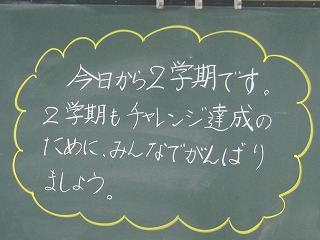 今日から2学期です。
2学期もチャレンジ達成の
ために、みんなでがんばり
ましょう。